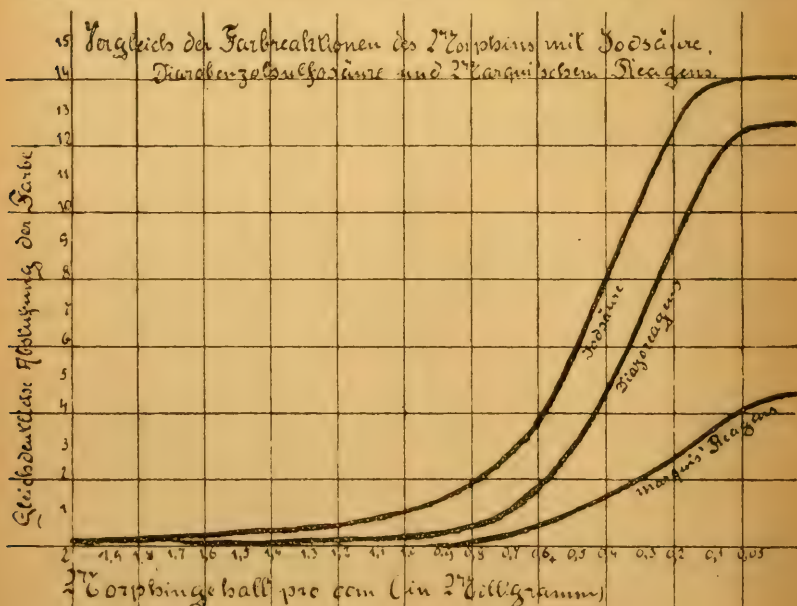 Vergleich der Farbreaktionen des Morphins mit Jodsäure,
Diazobenzolsulfosäure und Marqui'schem Reagens.
15
14
13
12
11
10
9
8
7
6
5
4
3
2
1
der Farbe
Jodsäure
Diazoreagens
Marquis' Reagens
2, 1,9 1,8 1,7 1,6 1,5 1,4 1,3 1,2 1,1 1,0 0,9 0,8 0,7 0,6 0,5 0,4 0,3 0,2 0,1 0,05
Morphingehalt pro ccm (in Milligramm)